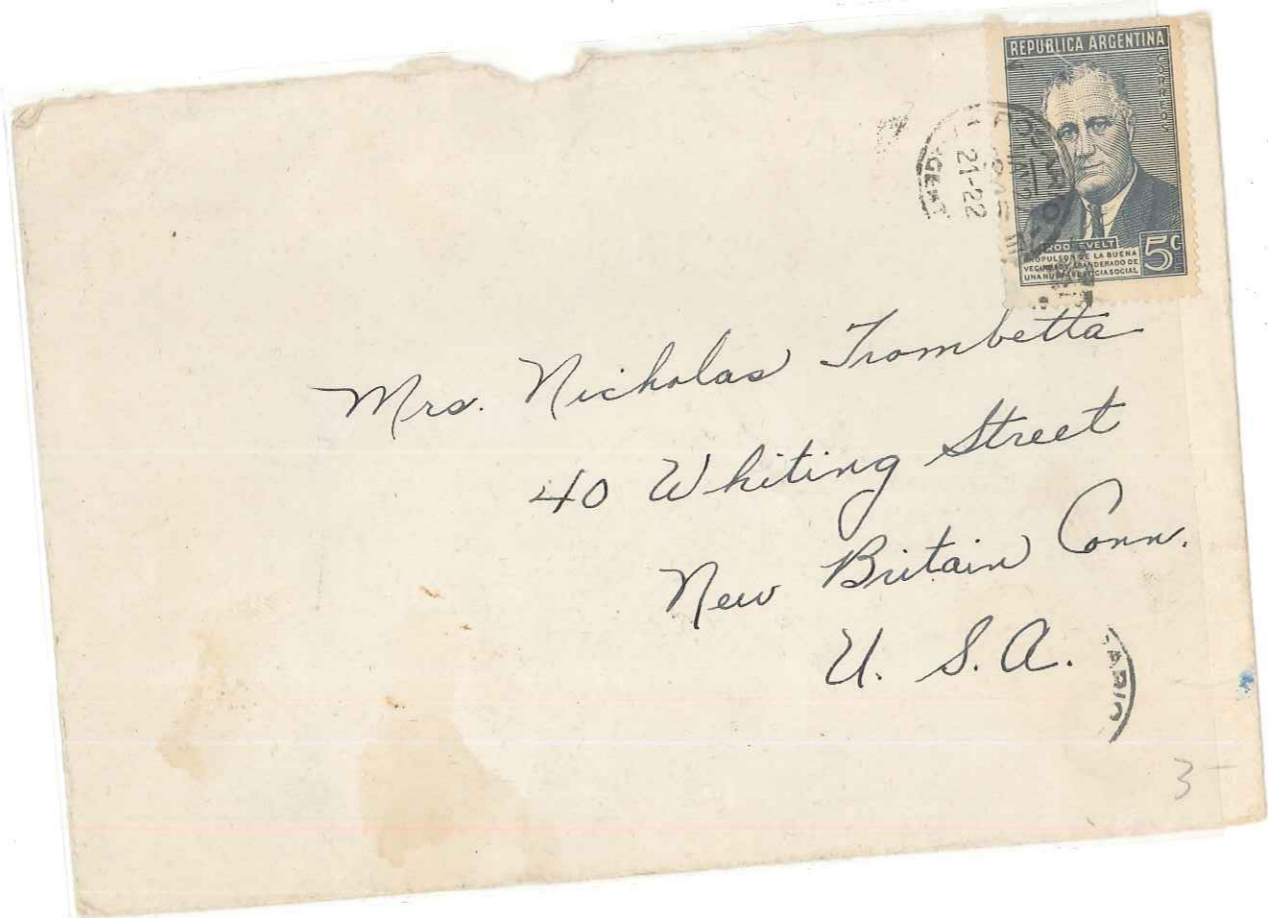 REPUBLICA ARGENTINA
CORREOS
ROOSEVELT
PROPULSOR DE LA BUENA
VECINDAD Y ABANDERADO DE
UNA NUEVA JUSTICIA SOCIAL
5c
21-22
Mrs. Nicholas Trombetta
40 Whiting Street
New Britain Conn.
U. S. A.
3-